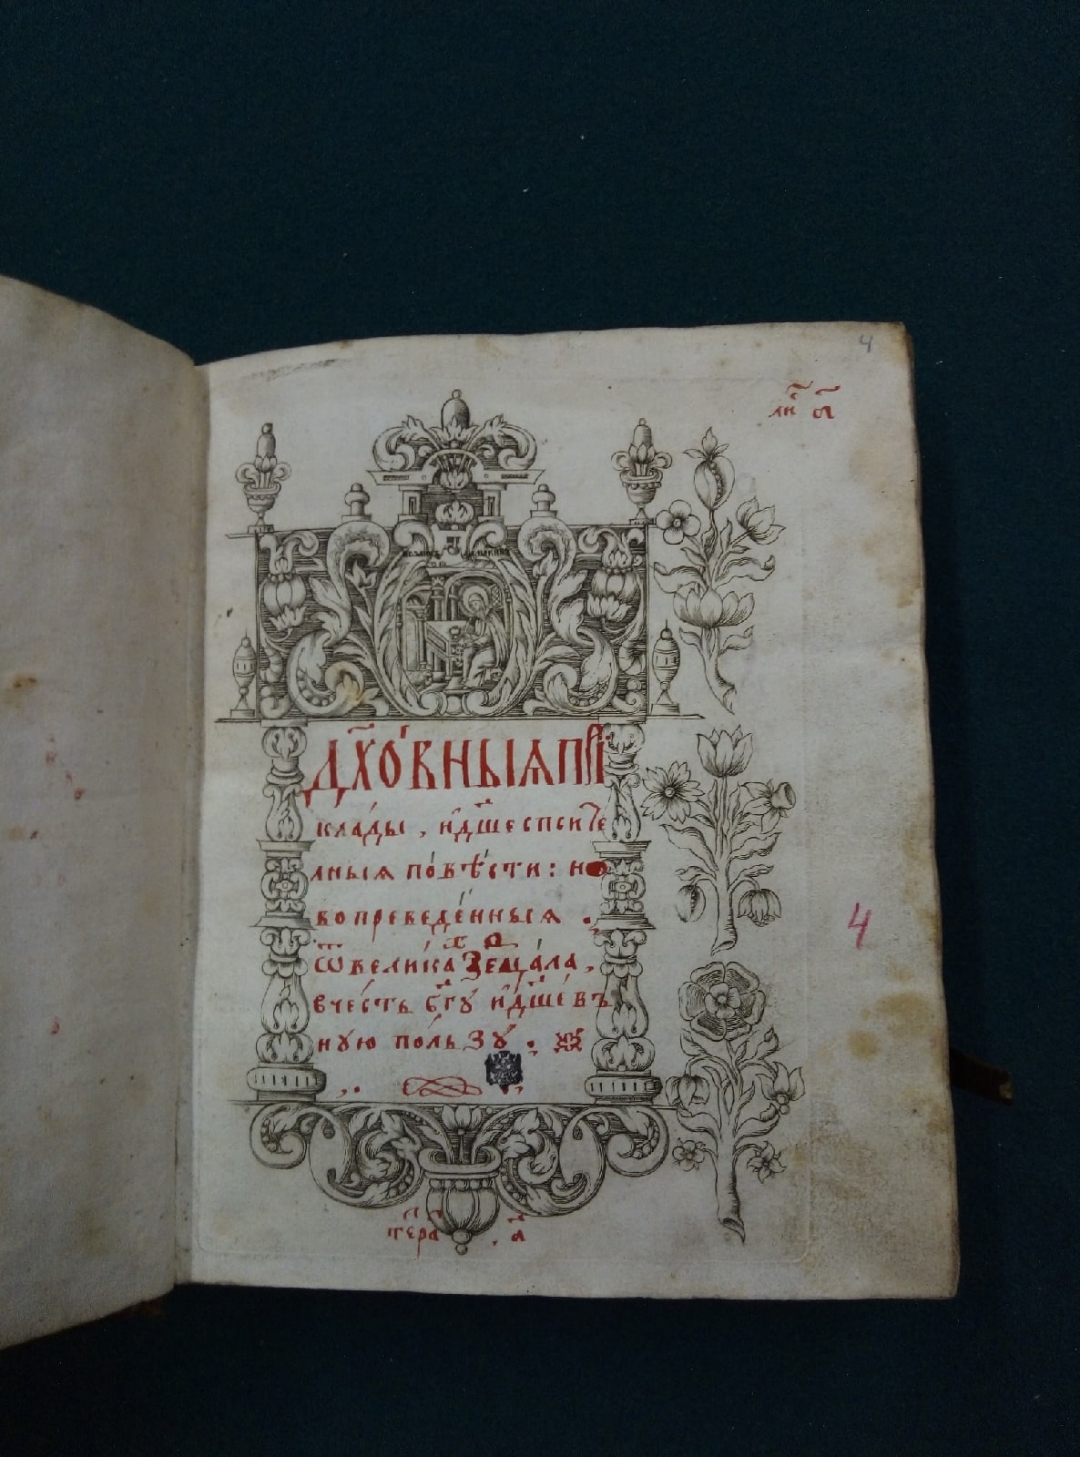 4
ли҃ст а҃
Дх҃о́вныѧ при
кла́ды , и҆дш҃еспси́те
лныѧ по́вѣсти : но
во преведе́нныѧ .
ѿ вели́ка Зеца́ла ,
в че́сть бг҃ꙋ и҆ дш҃е́въ
нꙋю по́льзꙋ .
4
тетра а҃